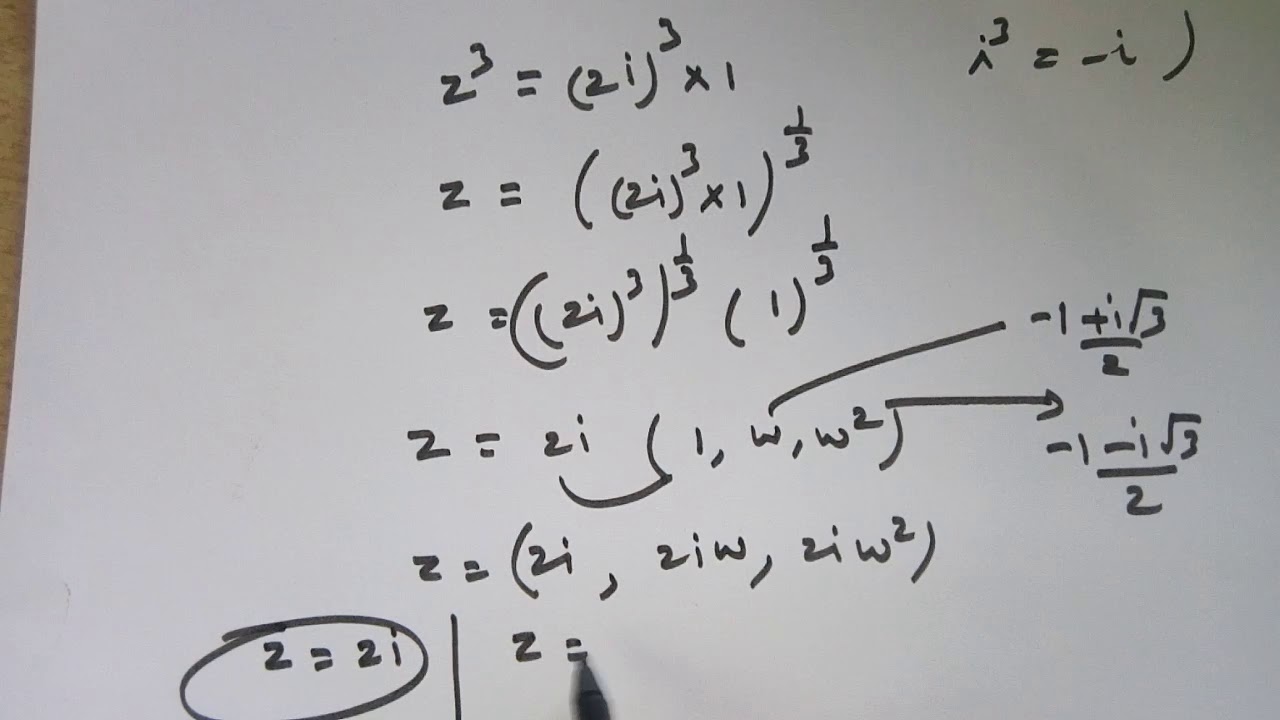 z³ = (2i)³ × 1
i³ = -i )
z = ((2i)³ × 1)^(1/3)
z = ((2i)³)^(1/3) (1)^(1/3)
(-1 + i√3)/2
z = 2i (1, w, w²)
(-1 - i√3)/2
z = (2i, 2iw, 2iw²)
z = 2i | z =